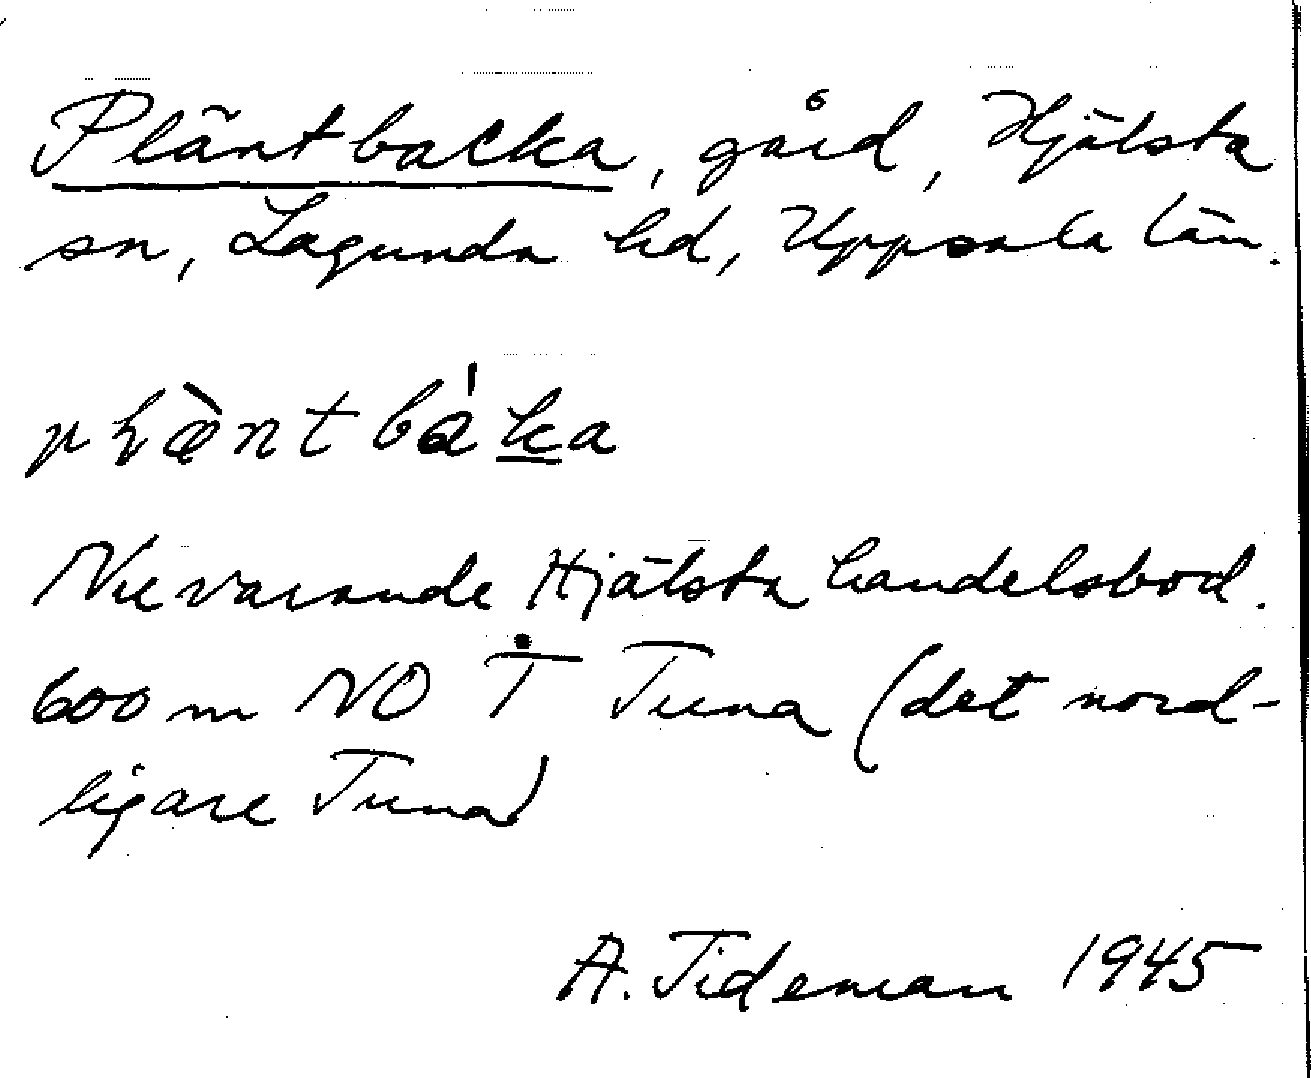 Pläntbacka, gård, Hjälsta
sn, Lagunda hd, Uppsala län.
plæ̀ntbáka
Nuvarande Hjälsta handelsbod.
600 m NO Ṫ Tuna (det nord-
ligare Tuna)
A. Tideman 1945